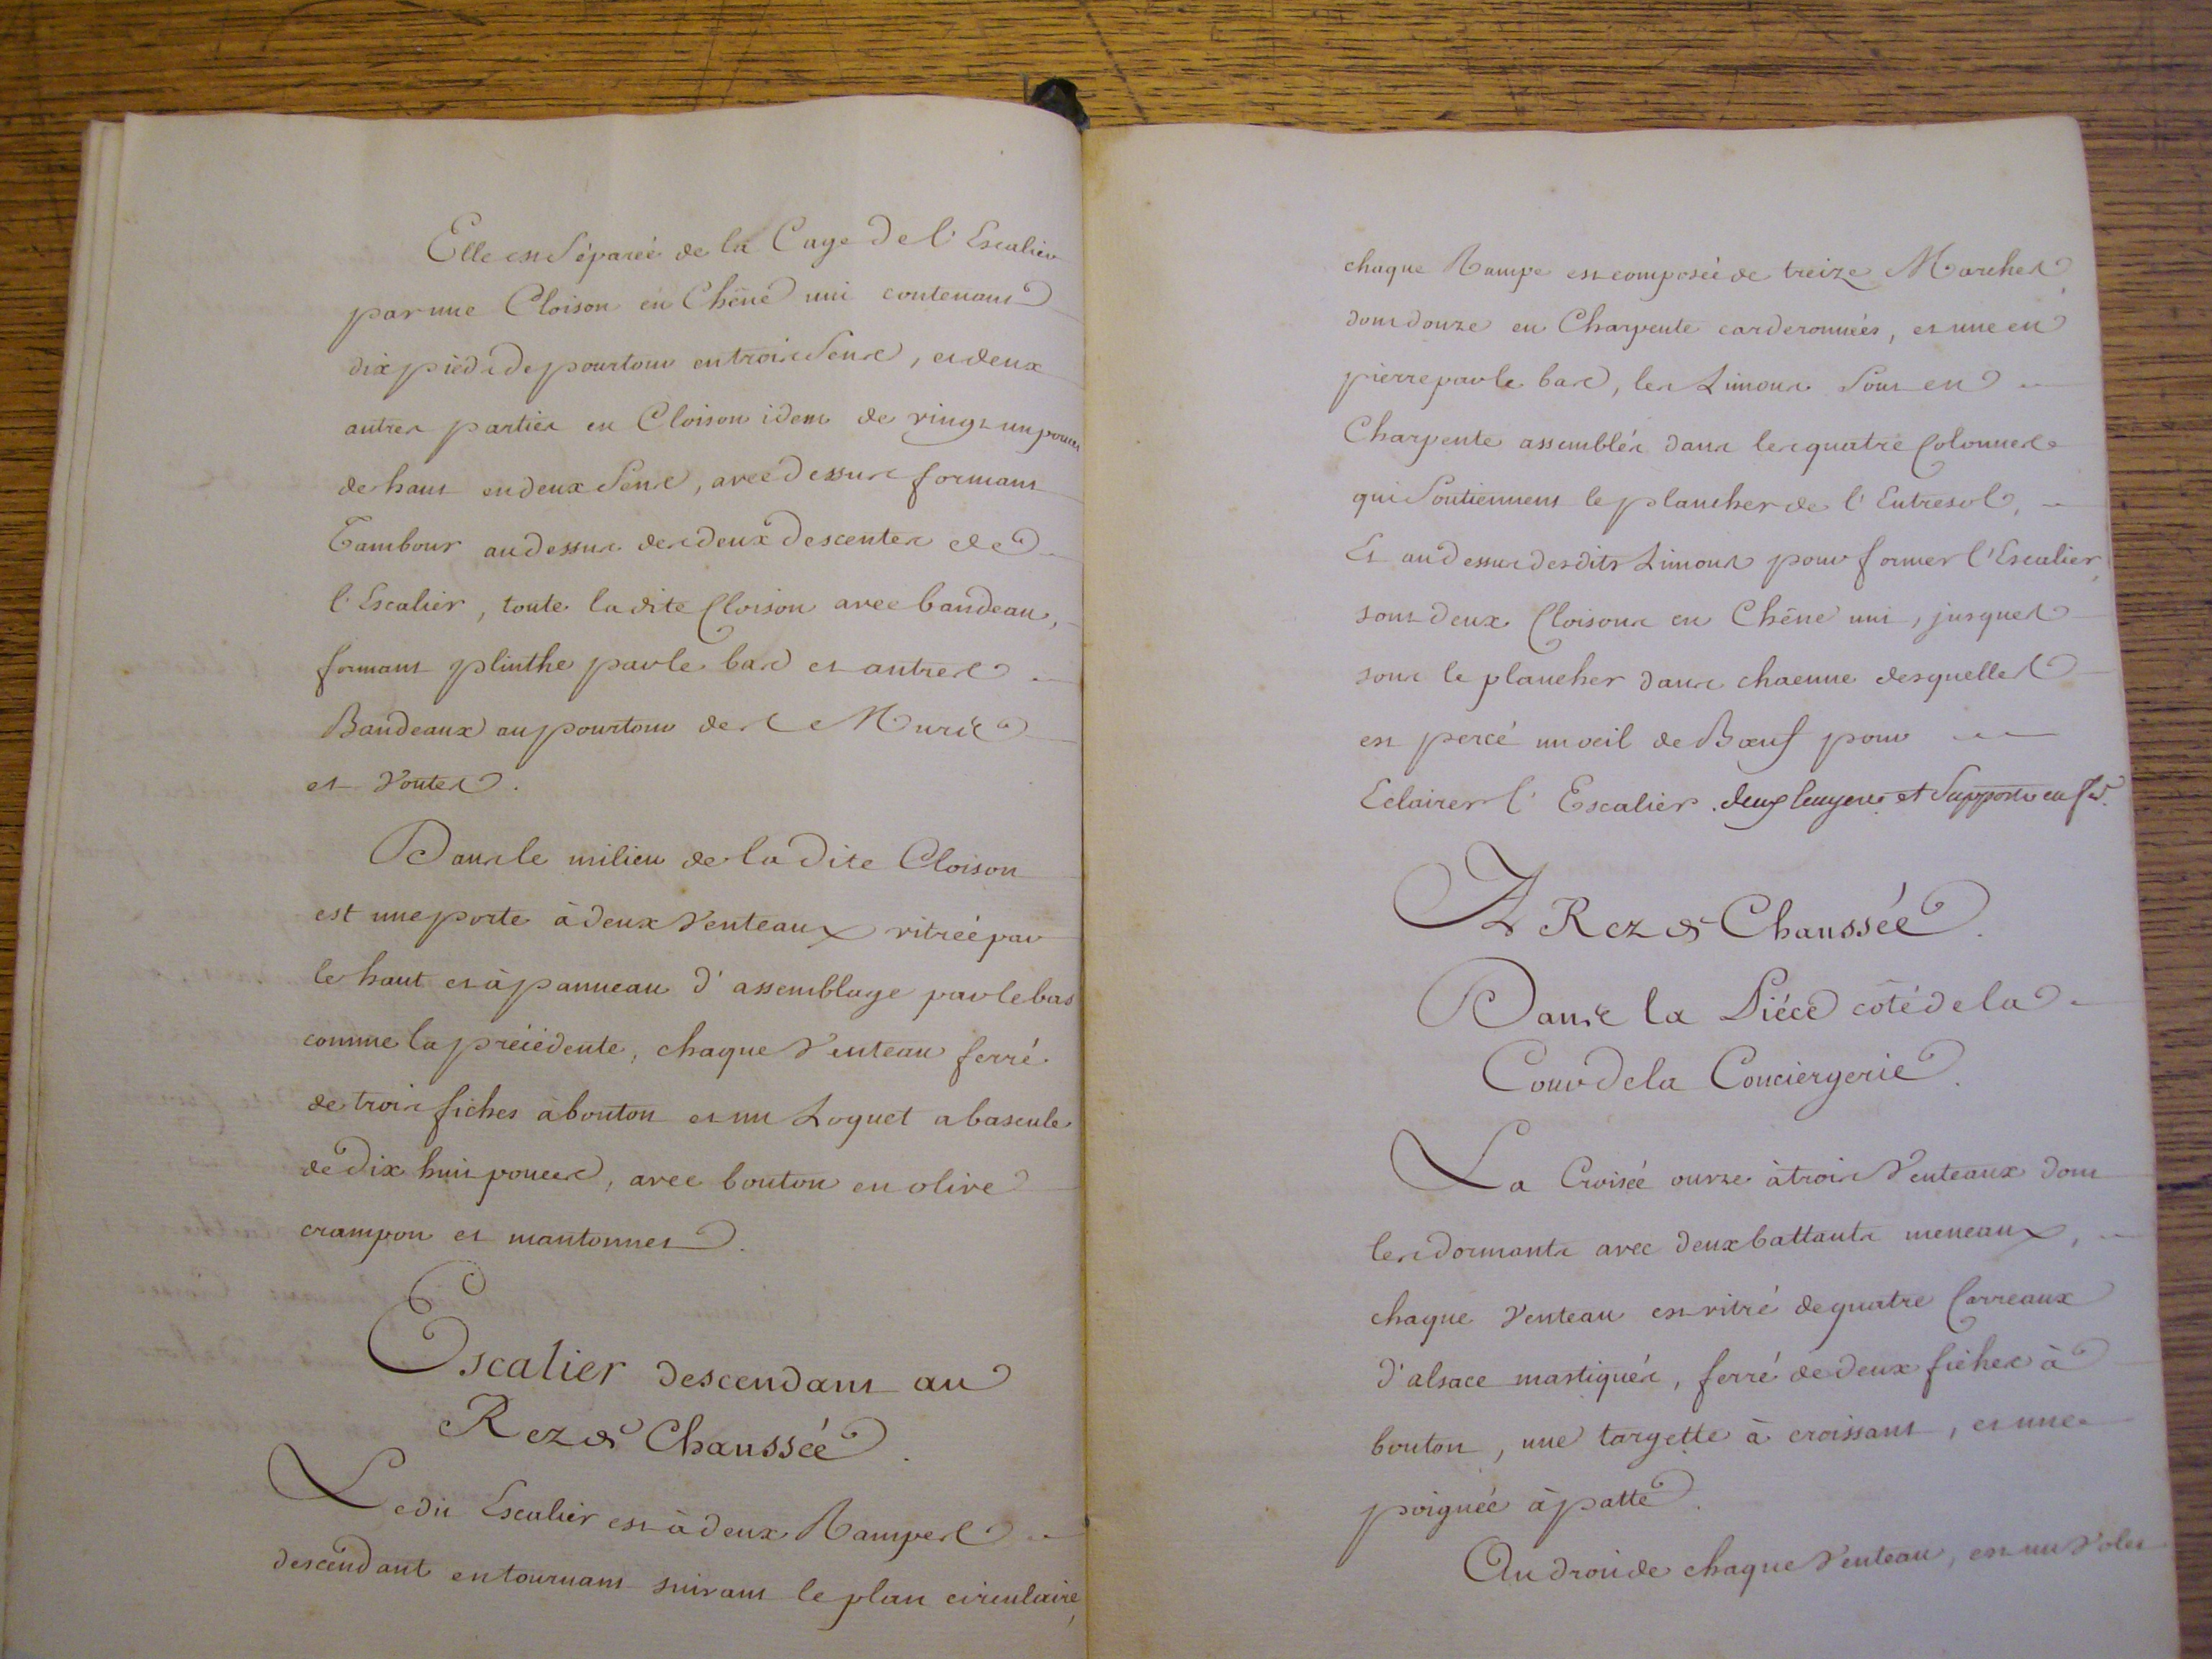 Elle est séparée de la Cage de l'Escalier
par une Cloison en Chêne uni contenant
dix pieds de pourtour en trois sens, et deux
autres parties en Cloison idem de vingt un pouces
de haut en deux sens, avec dessus formant
Tambour au dessus des deux descentes de
l'Escalier, toute la dite Cloison avec bandeau,
formant plinthe par le bas et autres
Bandeaux au pourtour des Murs
et Voutes.
Dans le milieu de la dite Cloison
est une porte à deux Venteaux vitrée par
le haut et à panneau d'assemblage par le bas
comme la précédente, chaque Venteau ferré
de trois fiches à bouton et un Loquet a bascule
de dix huit pouces, avec bouton en olive
crampon et mantonnet.
Escalier descendant au
Rez de Chaussée.
Ledit Escalier est à deux Rampes
descendant en tournant suivant le plan circulaire,
chaque Rampe est composée de treize Marches,
dont douze en Charpente carderonnées, et une en
pierre par le bas, les Limons sont en
Charpente assemblés dans les quatre Colonnes
qui Soutiennent le plancher de l'Entresol,
Et au dessus desdits Limons pour former l'Escalier,
sont deux Cloisons en Chêne uni, jusques
sous le plancher dans chacune desquelles
est percé un oeil de Bœuf pour
Eclairer l'Escalier. deux et Supports en fer.
A Rez de Chaussée.
Dans la Piéce côté de la
Cour de la Conciergerie.
La Croisée ouvre à trois Venteaux dont
les dormants avec deux battants meneaux,
chaque Venteau est vitré de quatre Carreaux
d'alsace mastiqués, ferré de deux fiches à
bouton, une targette à croissant, et une
poignée à patte.
Au droit de chaque Venteau, est un Volet